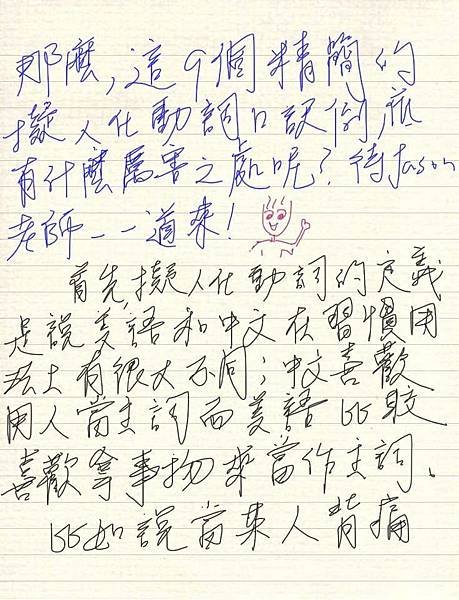 那麼,這9個精簡的
擬人化動詞口訣倒底
有什麼厲害之處呢?待Jason
老師一一道來!
首先,擬人化動詞的定義
是說美語和中文在習慣用
法上有很大不同;中文喜歡
用人當主詞而美語比較
喜歡拿事物來當作主詞、
比如說當某人背痛